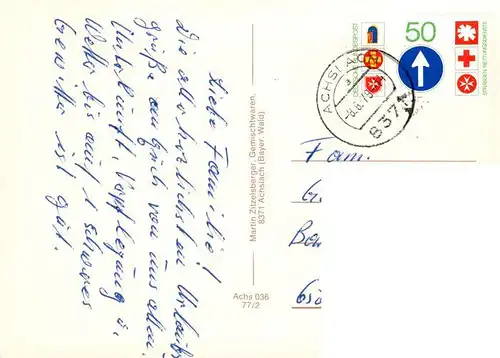 Liebe Familie!
Die allerherzlichsten Urlaubs-
grüße an Euch von uns allen.
Unterkunft, Verpflegung u.
Wetter bis auf 1 schweres
Gewitter ist gut.
Martin Zitzelsberger, Gemischtwaren,
8371 Achslach (Bayer. Wald)
Achs 036
77/2
DEUTSCHE BUNDESPOST
50
STRASSEN-RETTUNGSDIENSTE
ACHSLACH
a
-8.8.79
8371
Fam.